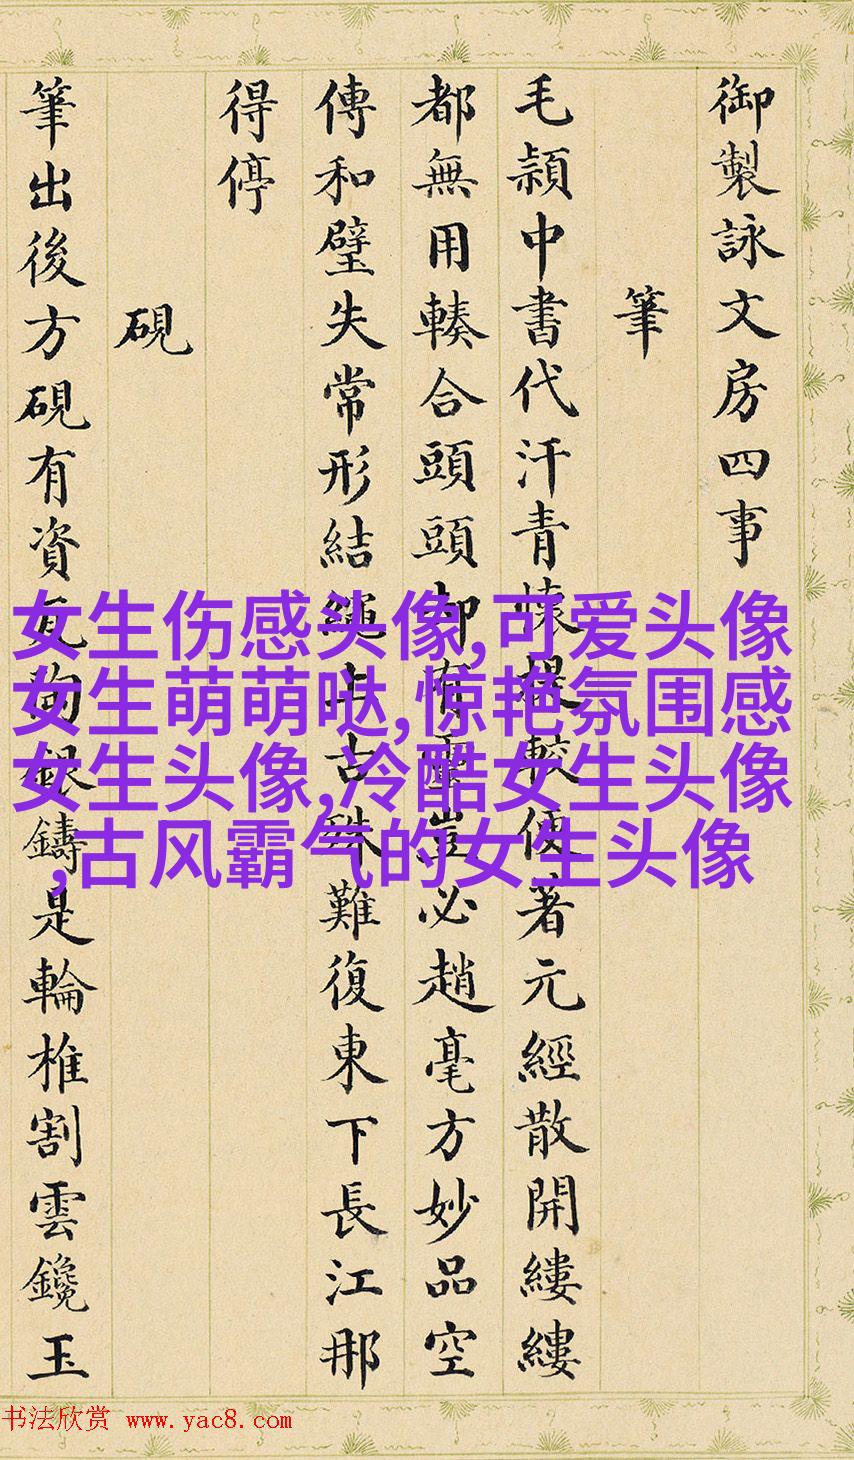 御製詠文房四事
筆
毛頴中書代汗青懷提較便著元經散開縷縷
都無用輳合頭頭却有靈豈必趙毫方妙品空
傳和璧失常形結繩上古殊難復東下長江那
得停
硯
筆出後方硯有資瓦陶銀鑄是輪椎割雲鑱玉
女生伤感头像,可爱头像
女生萌萌哒,惊艳氛围感
女生头像,冷酷女生头像
,古风霸气的女生头像
书法欣赏 www.yac8.com